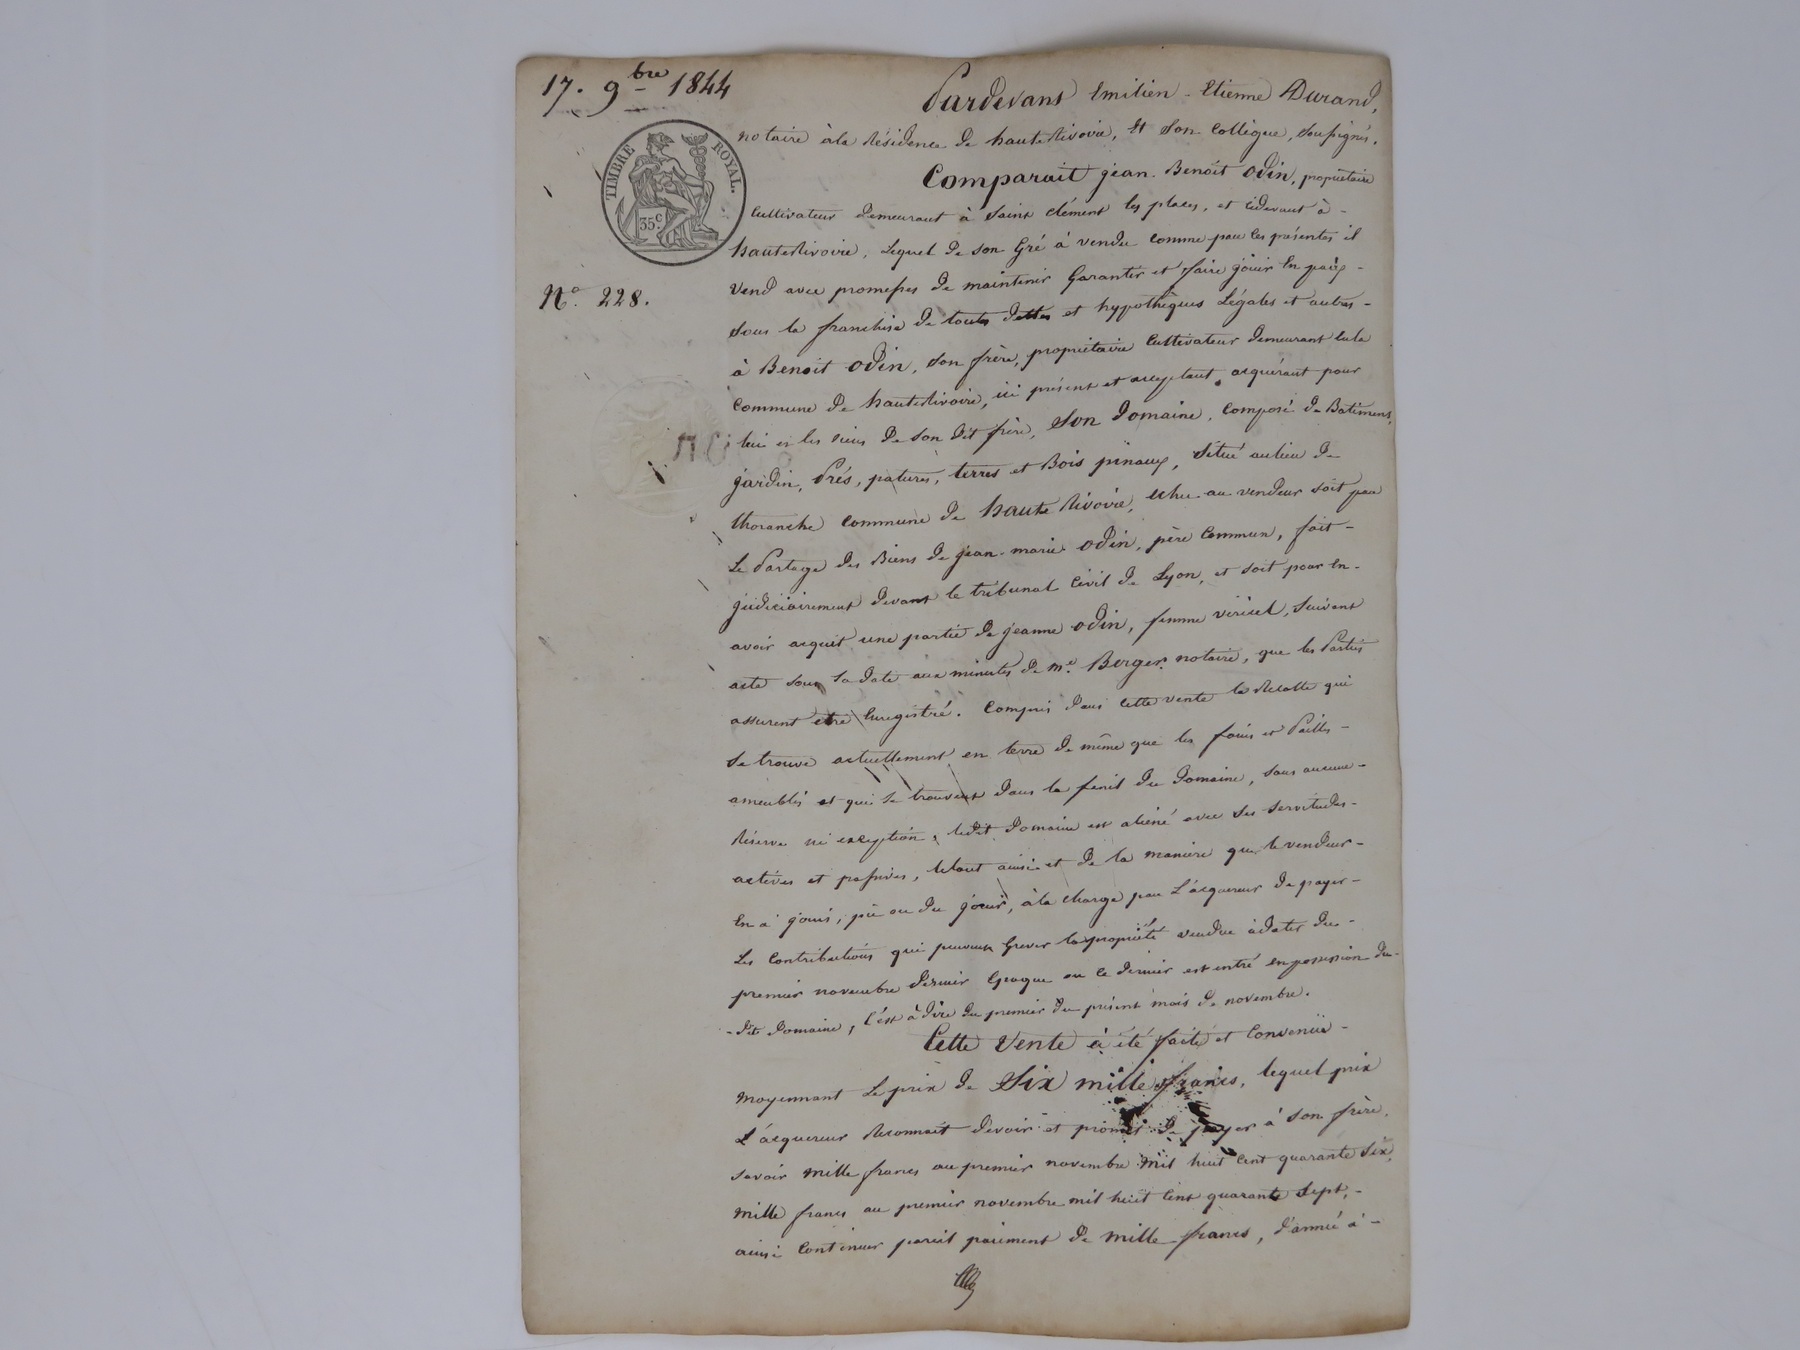 17. 9bre 1844
Pardevant Emilien-Etienne Durand,
TIMBRE ROYAL.
35c
notaire à la Résidence de hauteRivoire, et son Collègue, soussignés.
Comparait jean-Benoît Odin, propriétaire
Cultivateur demeurant à Saint Clément les places, et cidevant à -
hauteRivoire, Lequel de son Gré à vendu comme par les présentes il
N° 228.
Vend avec promesses de maintenir Garantir et faire jouir en paix -
Sous la franchise de toutes dettes et hypothèques Légales et autres -
à Benoit Odin, son frère, propriétaire Cultivateur demeurant enla
Commune de hauteRivoire, ici présent et acceptant, acquérant pour
lui et les siens de son dit frère, Son domaine, Composé de Batiments,
jardin, Prés, patures, terres et Bois pinaux, Situé aulieu de
thoranche commune de haute Rivoire, echu au vendeur soit par
Le Partage des Biens de jean-marie Odin, père Commun, fait -
judiciairement devant le tribunal Civil de Lyon, et soit pour en -
avoir acquit une partie de jeanne Odin, femme vericel, Suivant
acte sous sa date aux minutes de Me Berger notaire, que les Parties
assurent etre Enregistré. Compris dans Cette vente la Recolte qui
Se trouve actuellement en terre de même que les foins et Pailles -
ameublés et qui se trouvent dans la fenil du Domaine, sans aucune -
Réserve ni exception, ledit Domaine est aliené avec ses Servitudes -
actives et passives, letout ainsi et de la manière que le vendeur -
En a joui, pû ou du jouir, àla charge par L'acquereur de payer -
Les Contributions qui peuvent Grever la propriété vendue àdater du -
premier novembre dernier Epoque ou ce dernier est entré en possession du -
- dit Domaine, C'est à dire du premier du présent mois de novembre.
Cette Vente à été faite et Convenüe -
moyennant Le prix de Six mille francs, lequel prix
L'acquereur Reconnait devoir et promet de payer à son frère,
Savoir mille francs au premier novembre mil huit Cent quarante Six,
mille francs au premier novembre mil huit Cent quarante Sept, -
ainsi Continuer pareil paiement de mille francs, d'année à -